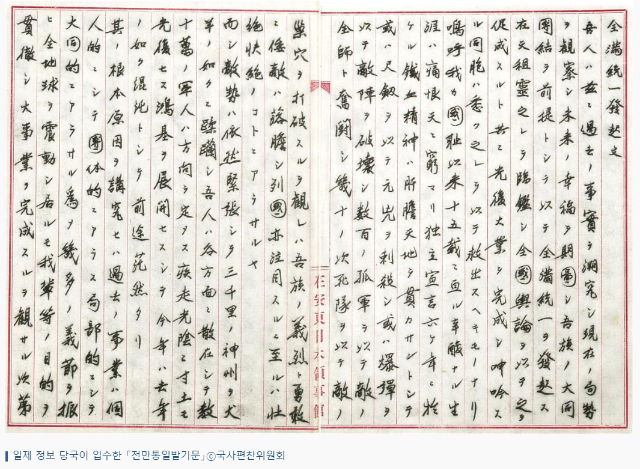 全満統一發起文
吾人ハ茲ニ過去ノ事實ヲ洞究シ現在ノ局勢
ヲ觀察シ未來ノ幸福ヲ期圖シ吾族ノ大同
團結ヲ前提トシテ以テ全満統一ヲ發起ス
在天祖靈之レヲ臨鑑シ全國輿論ヲ以テ之ヲ
促成スルト共ニ光復大業ヲ完成シ呻吟ス
ル同胞ハ悉ク之レヲ以テ救出スヘキモノナリ
嗚呼我カ國耻以来十五載ニ血ル辛酸ナル生
涯ハ痛恨天ニ窮マリ独立宣言六ケ年ニ於
ケル鐵血精神ハ肝膽天地ヲ貫カサルナシ
或ハ尺劔ヲ以テ元兇ヲ刺殺シ或ハ爆彈ヲ
以テ敵陣ヲ破壊シ数百ノ孤軍ヲ以テ敵ノ
全師ト奮闘シ幾十ノ次死隊ヲ以テ敵ノ
在安東日本領事館
巣穴ヲ打破スルヲ觀レハ吾族ノ義烈ト勇敢
ニ倭敵ハ落膽シ列國亦注目スルニ至ルハ壮
絶快絶ノコトニアラサルヤ
而シ敵勢ハ依然緊張シテ三千里ノ神州ヲ犬
羊ノ如ク蹂躙シ吾人ハ各方面ニ散在シテ数
十萬ノ軍人ハ方向ヲ定メス疾走光陰ニ寸土モ
光復セス鴻基ヲ展開セスシテ今年ハ去年
ノ如ク混沌トシテ前途茫然タリ
其ノ根本原因ヲ講究セハ過去ノ事業ハ個
人的ニシテ團体的ニアラス局部的ニシテ
大同的ニアラサル為メ幾多ノ義節ヲ振
ヒ全地球ヲ震動シ居ルモ我輩等ノ目的ヲ
貫徹シ大事業ヲ完成スルヲ觀サル次第
일제 정보 당국이 입수한 「전만통일발기문」ⓒ국사편찬위원회